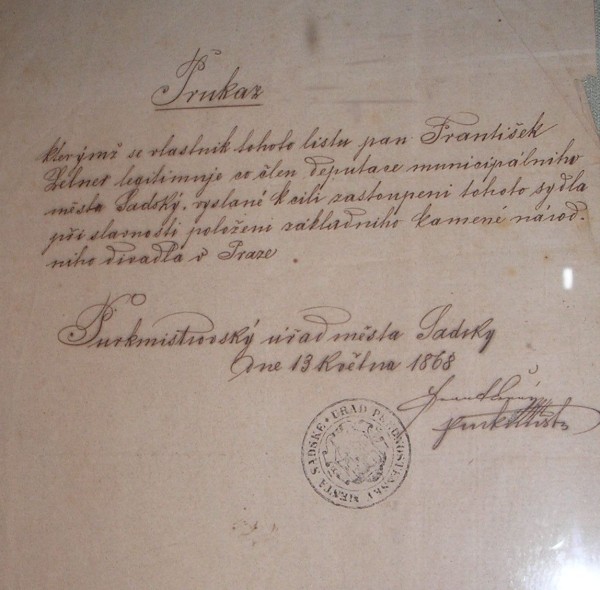 Průkaz
kterýmž se vlastník tohoto listu pan František
Zelner legitimuje co člen deputace municipálního
města Sadský, vyslané k cíli zastoupení tohoto sydla
při slavnosti položení základního kamené národ-
ního divadla v Praze
Purkmistrovský úřad města Sadsky
dne 13 Května 1868
purkmistr
URAD PŘEDNOSTENSKÝ MĚSTA SADSKÉ